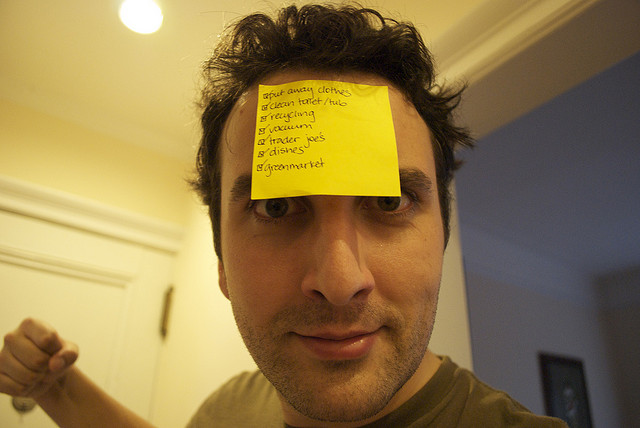 ☑ put away clothes
☑ clean toilet/tub
☑ recycling
☑ vacuum
☑ trader joe's
☑ dishes
☑ greenmarket